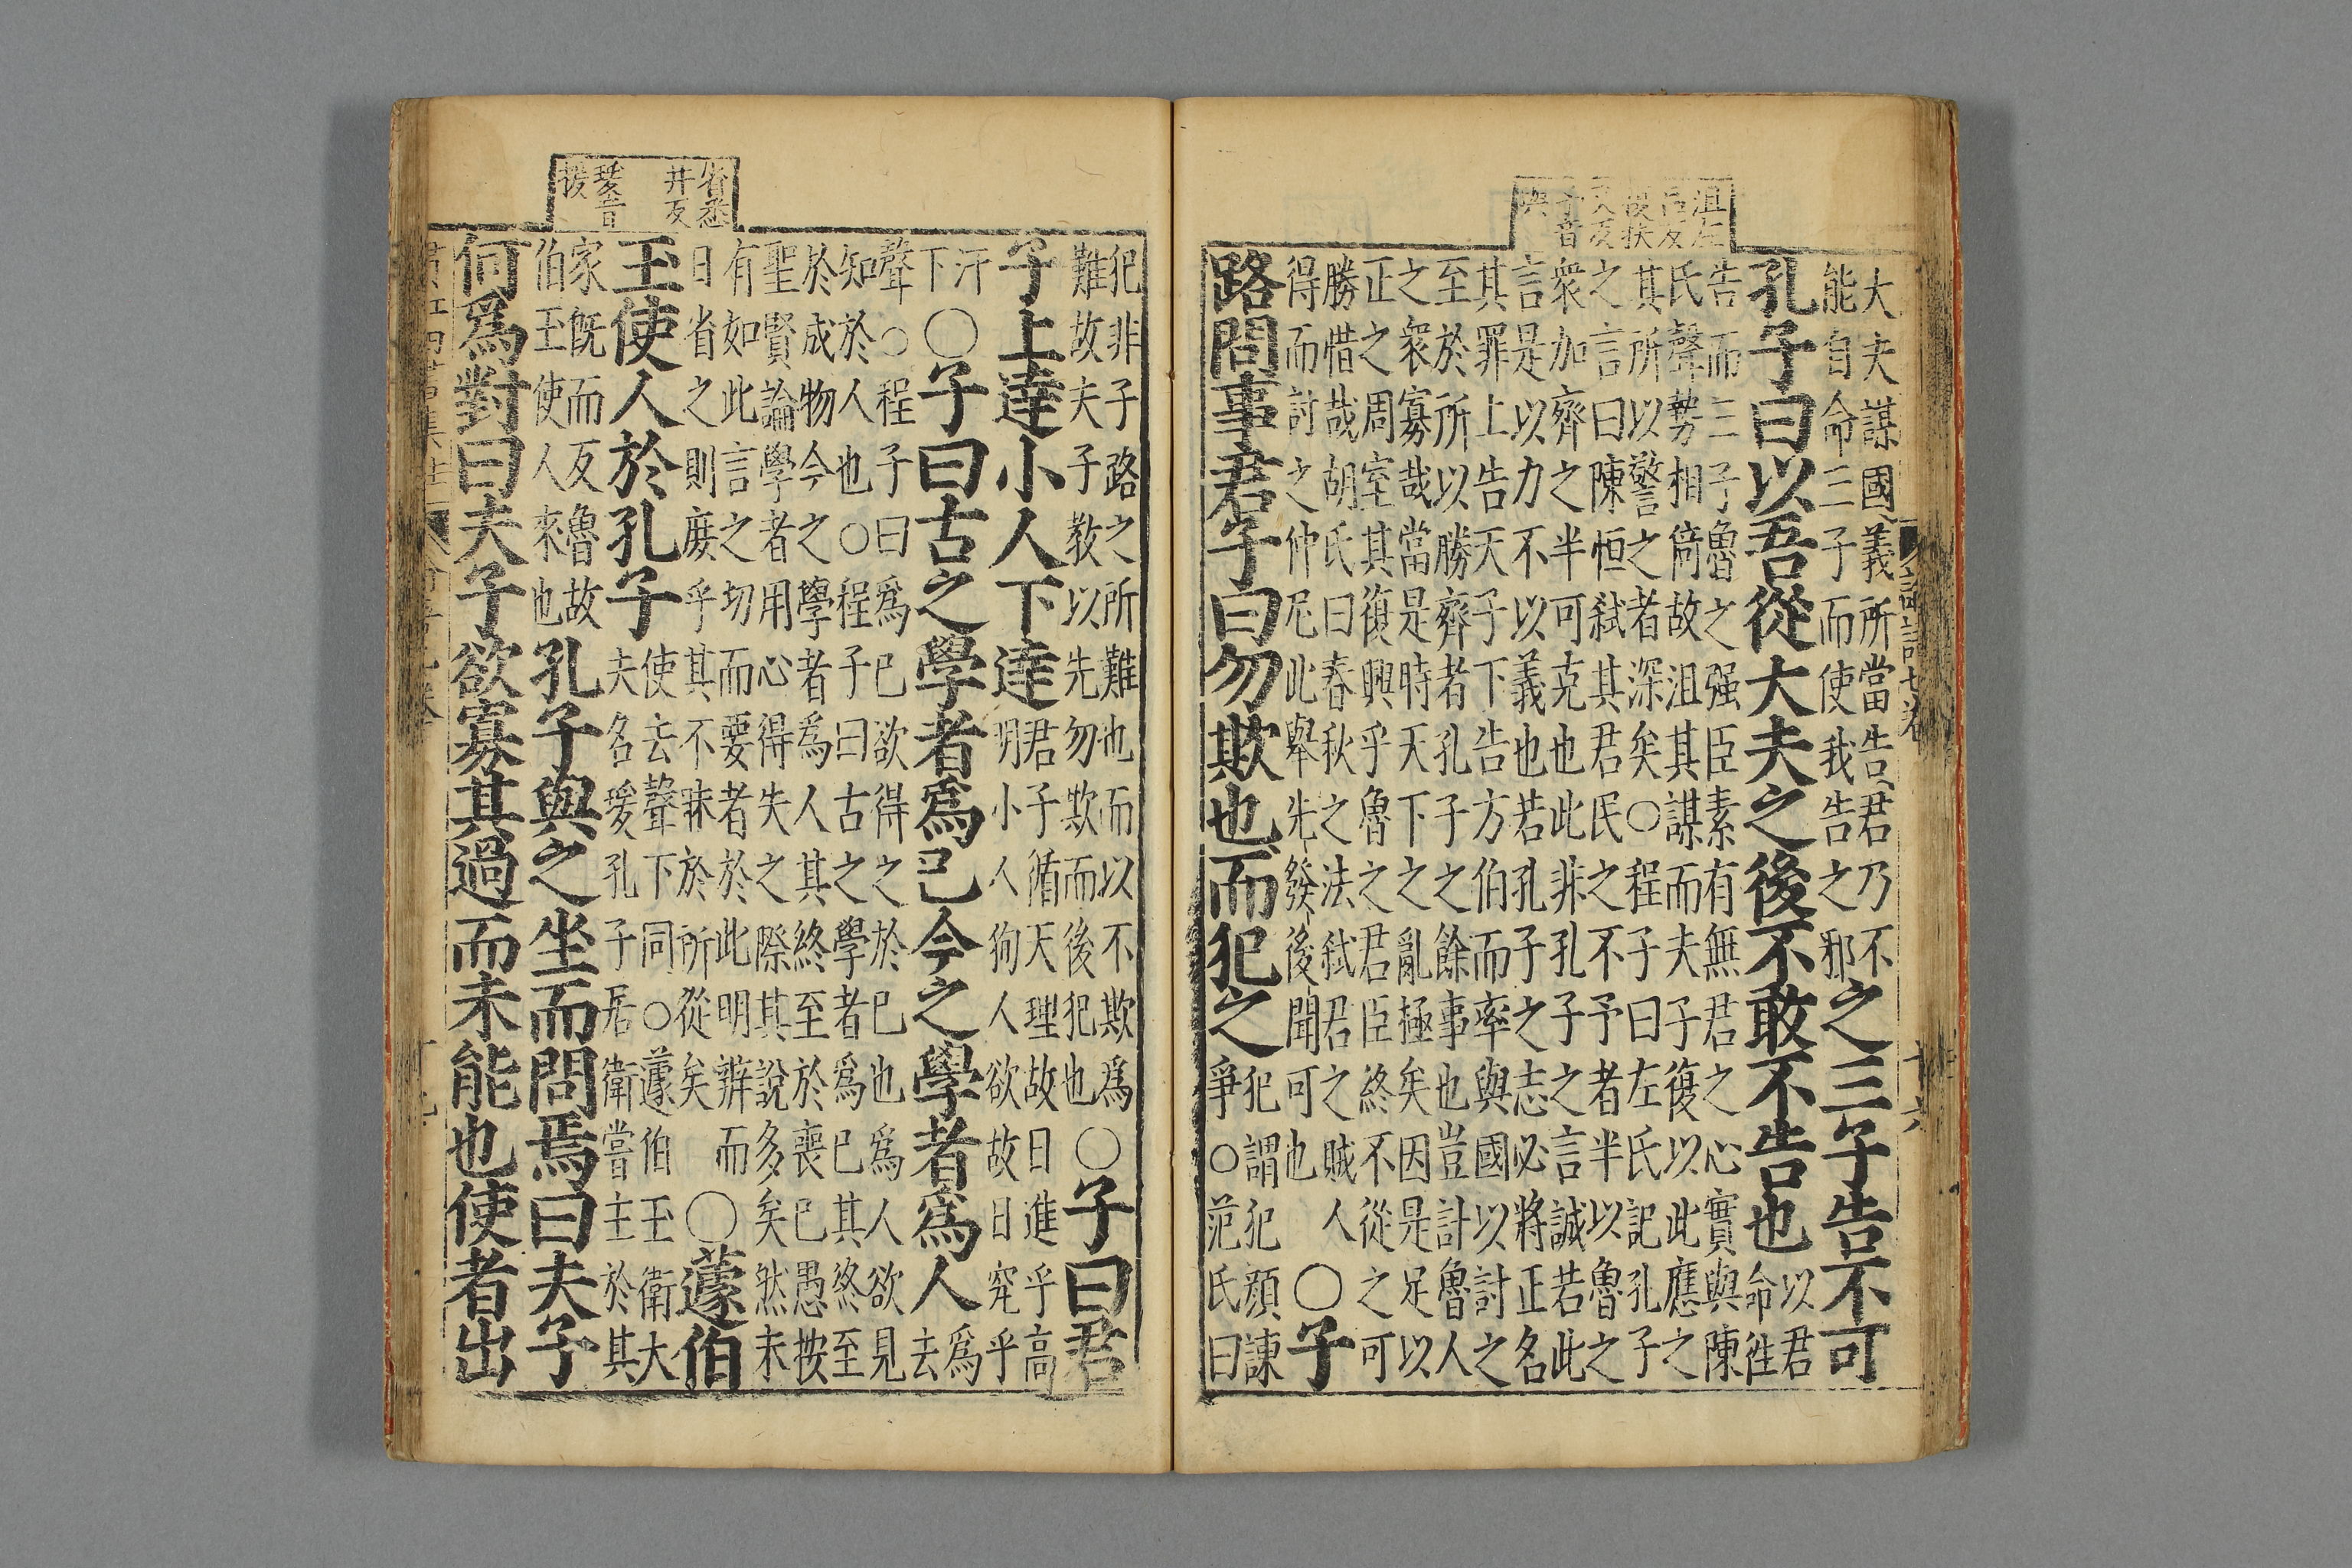 大夫謀國義所當告君乃不
能自命三子而使我告之邪
之三子告不可
孔子曰以吾從大夫之後不敢不告也
以君
命往
告而三子魯之强臣素有無君之心實與陳
氏聲勢相倚故沮其謀而夫子復以此應之
其所以警之者深矣○程子曰左氏記孔子
之言曰陳恒弑其君民之不予者半以魯之
衆加齊之半可克也此非孔子之言誠若此
言是以力不以義也若孔子之志必將正名
其罪上告天子下告方伯而率與國以討之
至於所以勝齊者孔子之餘事也豈計魯人
之衆寡哉當是時天下之亂極矣因是足以
正之周室其復興乎魯之君臣終不從之可
勝惜哉胡氏曰春秋之法弑君之賊人
得而討之仲尼此舉先發後聞可也
○子
路問事君子曰勿欺也而犯之
犯謂犯顔諫
爭○范氏曰
犯非子路之所難也而以不欺爲
難故夫子敎以先勿欺而後犯也
○子曰君
子上達小人下達
君子循天理故日進乎高
明小人狥人欲故日究乎
汙
下
○子曰古之學者爲己今之學者爲人
爲
去
聲○程子曰爲己欲得之於己也爲人欲見
知於人也○程子曰古之學者爲己其終至
於成物今之學者爲人其終至於喪己愚按
聖賢論學者用心得失之際其說多矣然未
有如此言之切而要者於此明辨而
日省之則庶乎其不昧於所從矣
○蘧伯
玉使人於孔子
使去聲下同○蘧伯玉衛大
夫名瑗孔子居衛嘗主於其
家旣而反魯故
伯玉使人來也
孔子與之坐而問焉曰夫子
何爲對曰夫子欲寡其過而未能也使者出
省悉
井反
瑗音
援